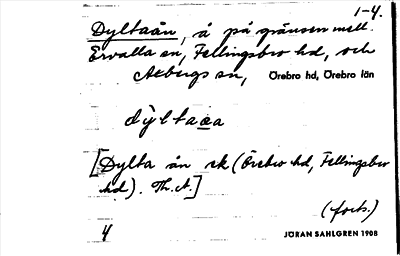 1-4.
Dyltaån, å på gränsen mell.
Ervalla sn, Fellingsbro hd, och
Axbergs sn, Örebro hd, Örebro län
dỳltaa̲a
[Dylta ån rk (Örebro hd, Fellingsbro
hd). Th.A.]
(forts.)
4 JÖRAN SAHLGREN 1908